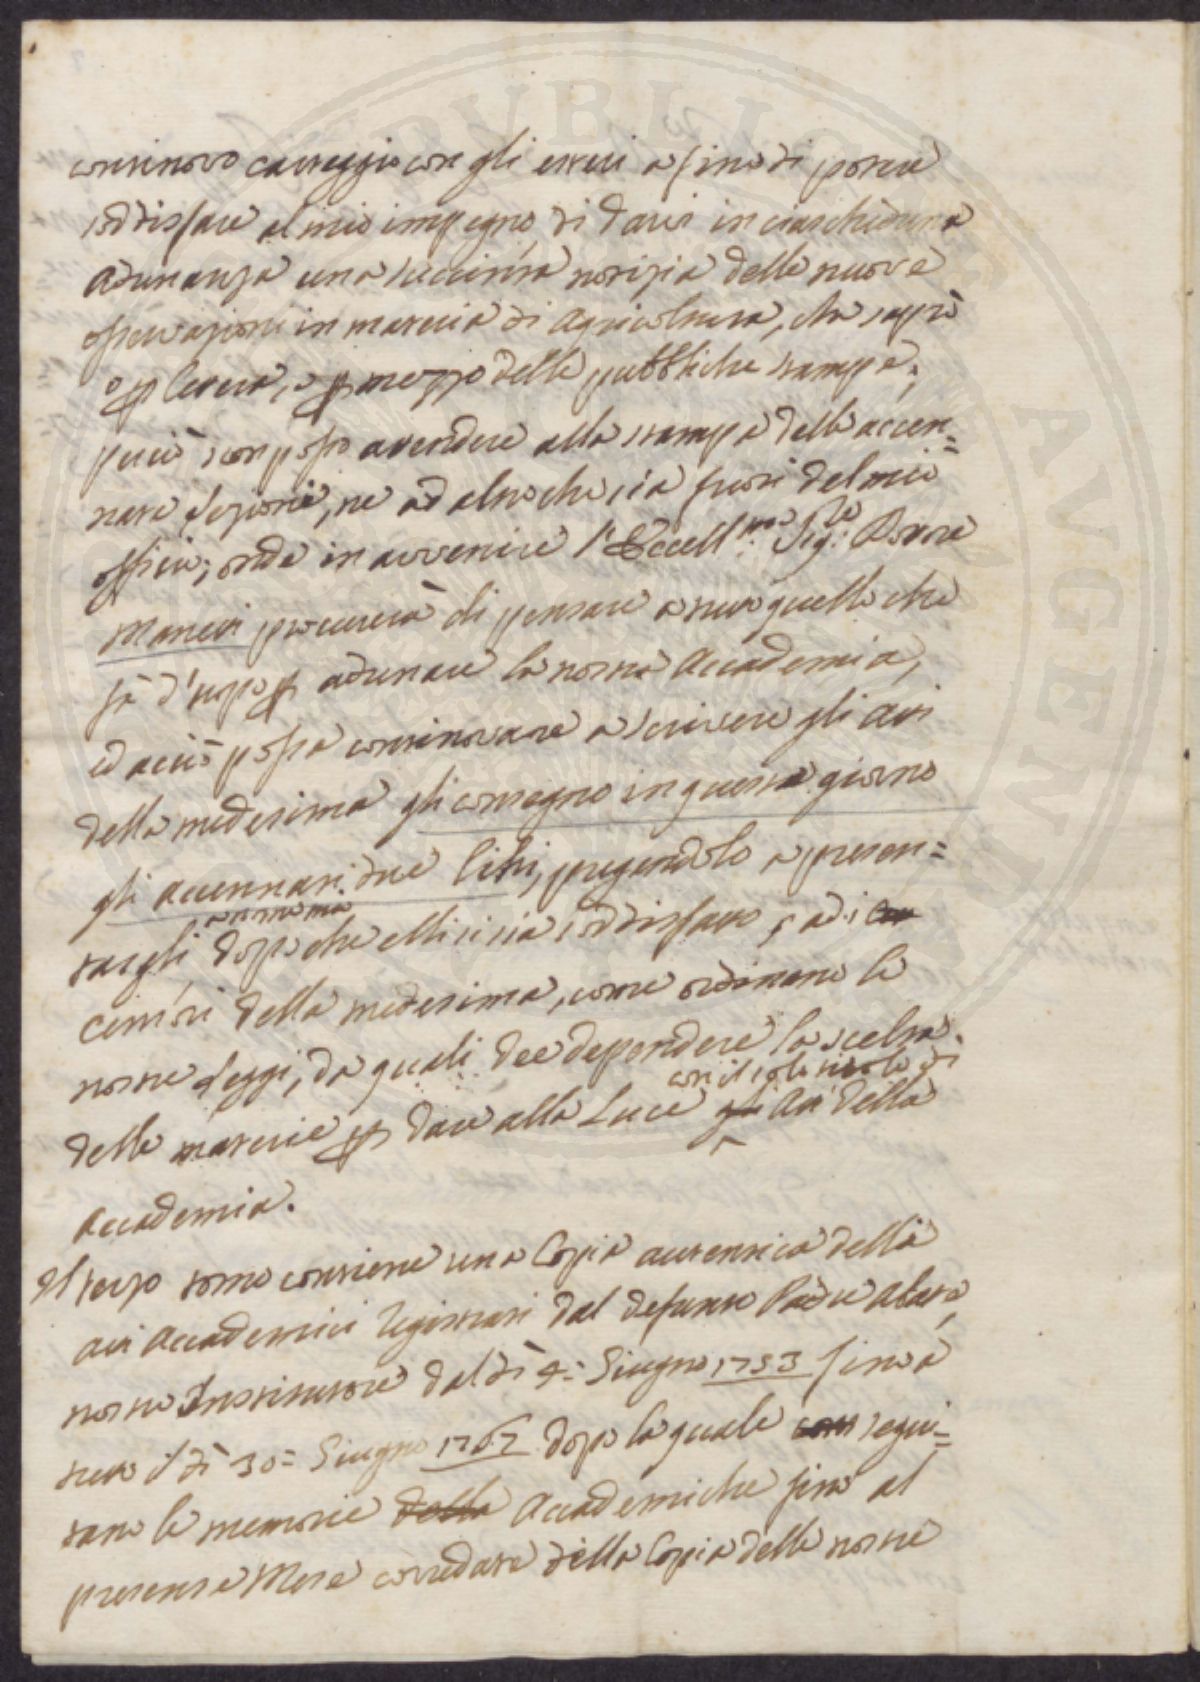 continovo carteggio con gli esteri a fine di poter
soddisfare al mio impegno di darvi in ciascheduna
Adunanza una succinta notizia delle nuove
osservazioni in materia di Agricoltura, che saprò
o p lettera, o p mezzo delle pubbliche stampe;
perciò non posso attendere alla stampa delle accen=
nate Lezioni, ne ad altro che sia fuori del mio
offizio; onde in avvenire l'Eccell.mo Sig.re Dottore
Manetti procurerà di pensare a tutto quello che
fà d'uopo p adunare la nostra Accademia,
ed acciò possa continovare a scrivere gli Atti
della medesima gli consegno in questo giorno
gli accennati due libri, pregandolo a presen=
targli a norma dopo che ellisi sia soddisfatto, a i
Censori della medesima, come ordinano le
nostre Leggi, da quali dee dependere la scelta
delle materie p dare alla Luce con il solo titolo di Atti della
Accademia.
Il terzo tomo contiene una Copia autentica delli
Atti Accademici registrati dal defunto Padre Abate
nostro Institutore dal dì 4: Giugno 1753 fino a
tutto il dì 30: Giugno 1767 dopo la quale segui=
tano le memorie della Accademiche fino al
presente Mese corredate della Copia delle nostre
PUBLICAE AVGENDA